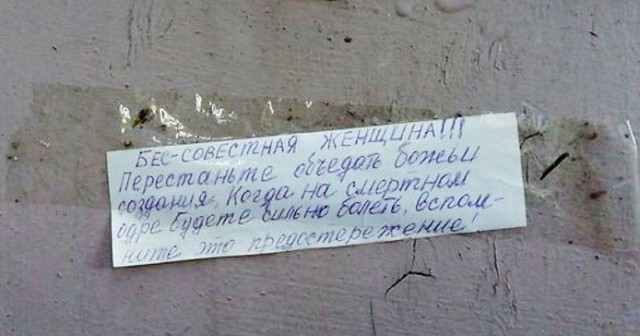 БЕС-СОВЕСТНАЯ ЖЕНЩИНА!!!
Перестаньте объедать божьи
создания. Когда на смертном
одре будете сильно болеть, вспом-
ните это предостережение!